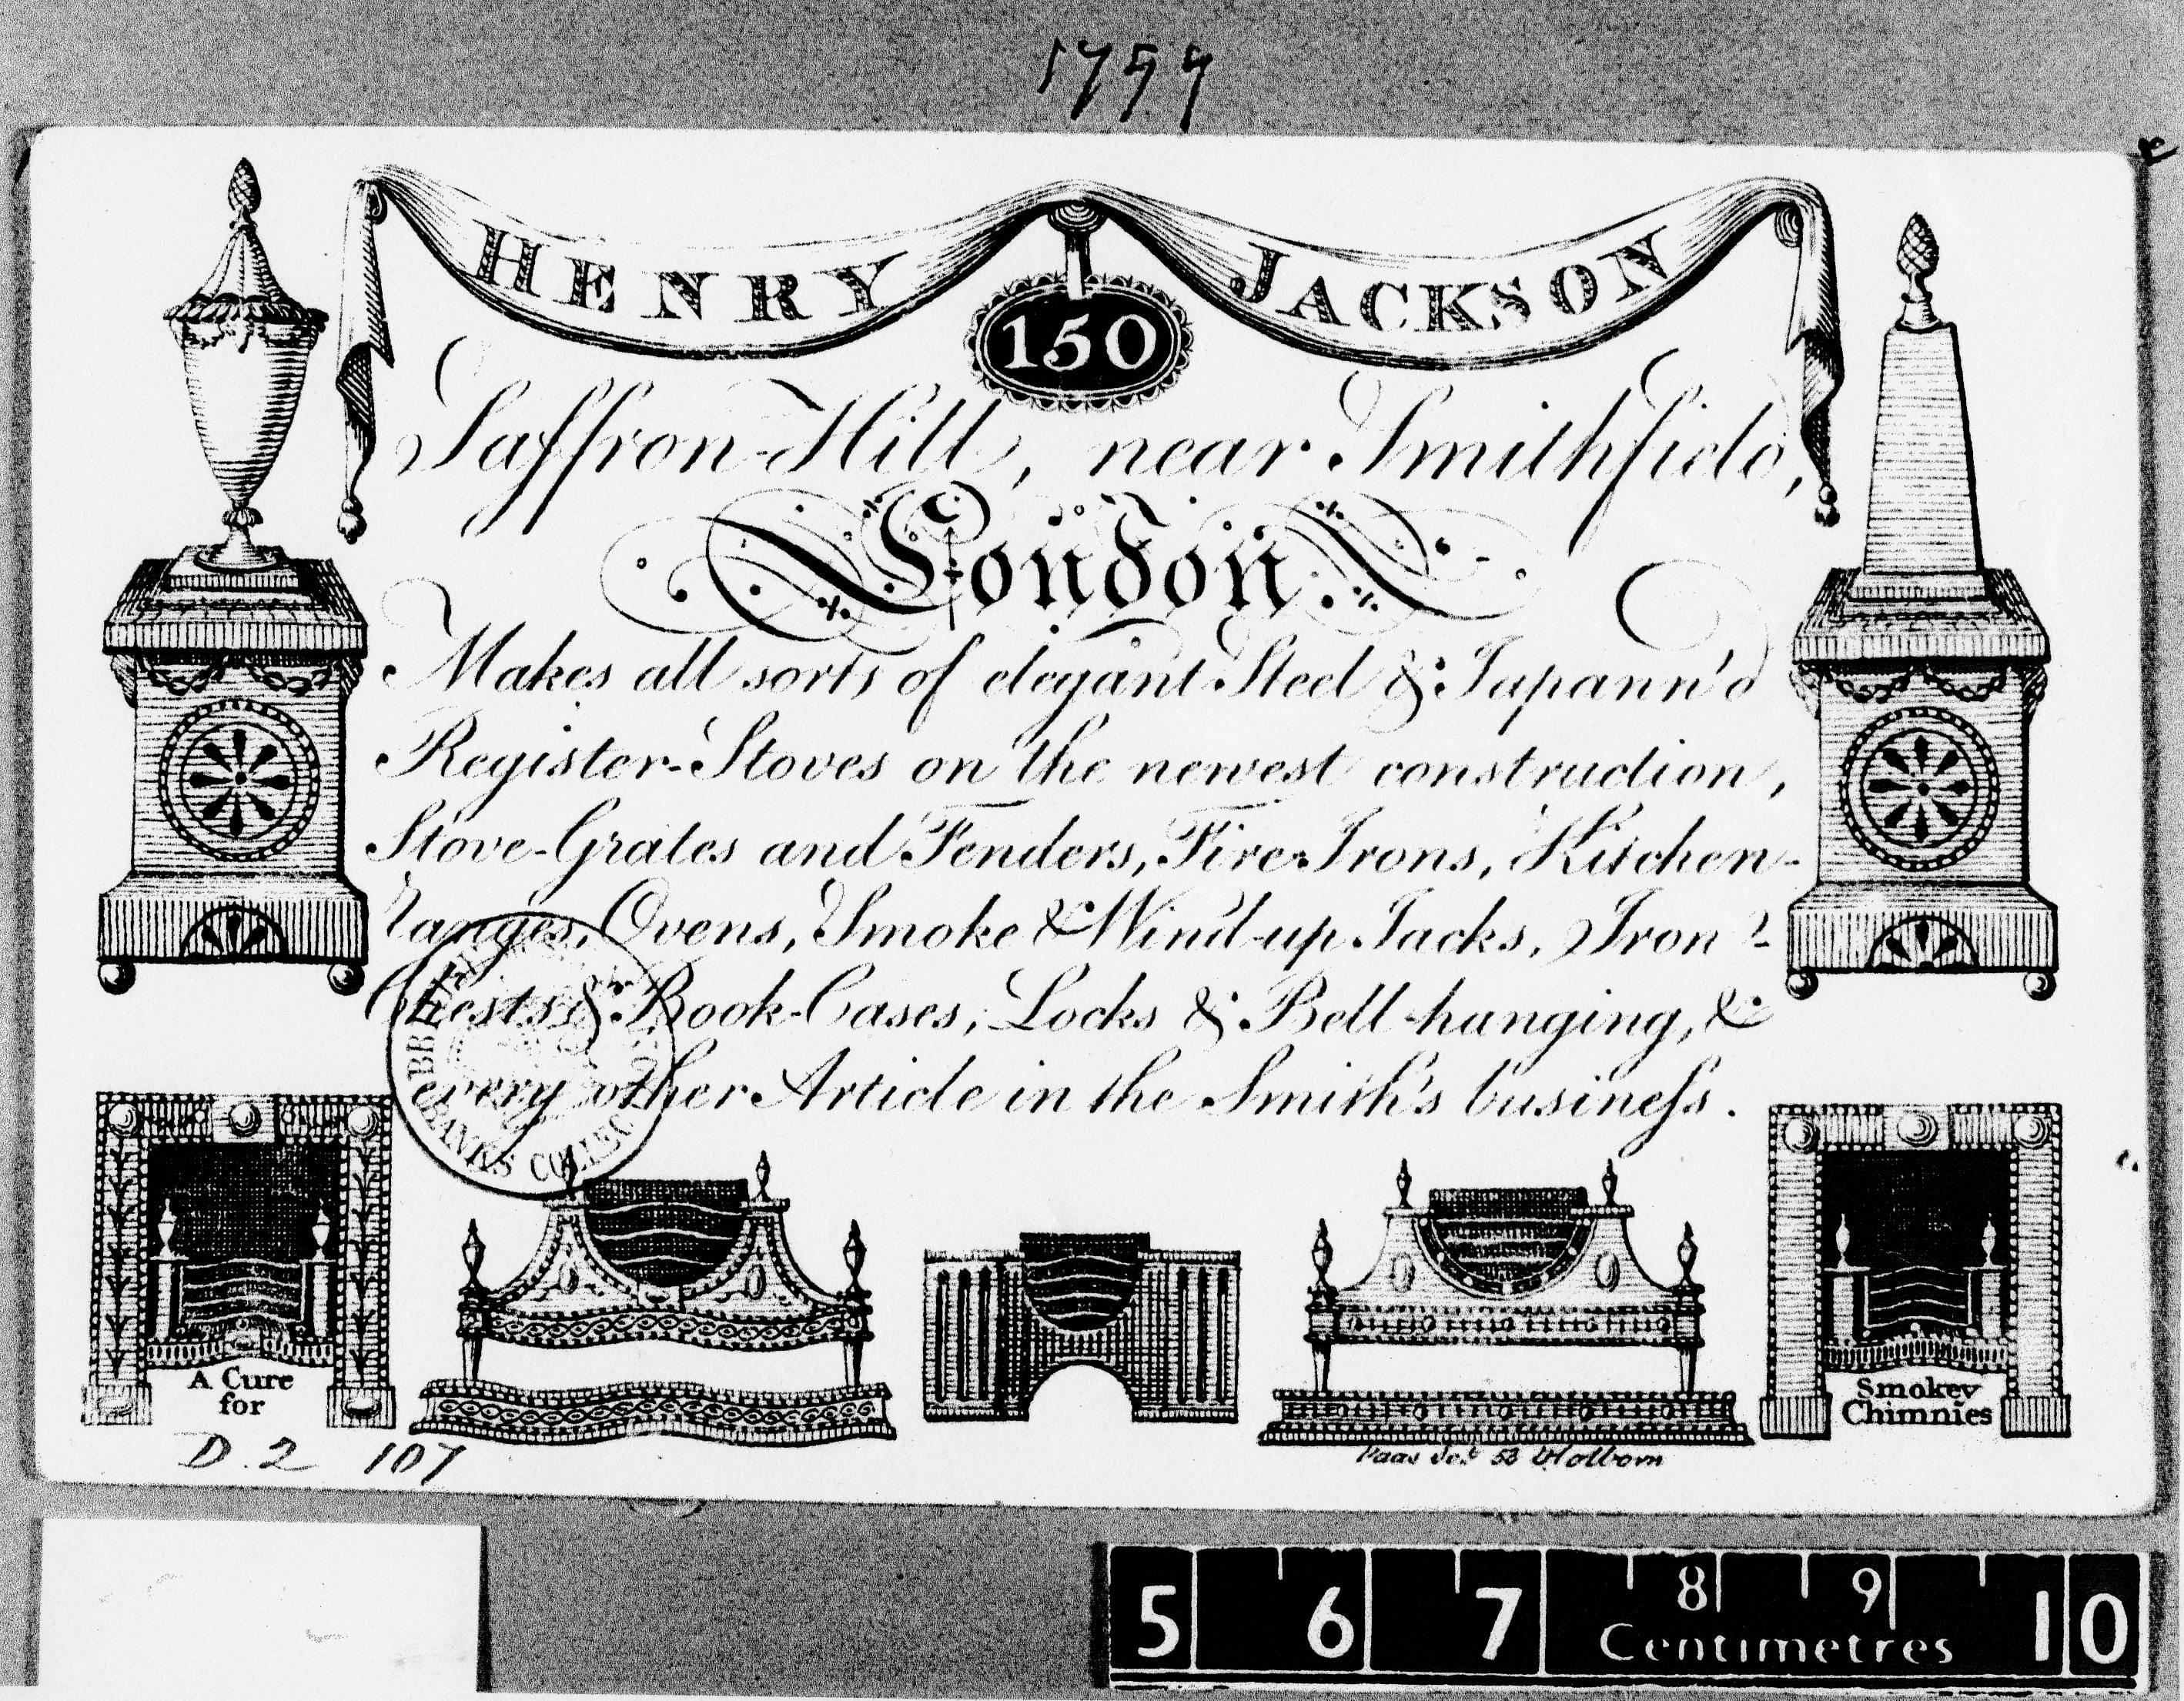 1799
HENRY JACKSON
150
Saffron-Hill, near Smithfield,
London
Makes all sorts of elegant Steel & Japann'd
Register-Stoves on the newest construction,
Stove-Grates and Fenders, Fire Irons, Kitchen-
ranges, Ovens, Smoke & Wind-up Jacks, Iron-
Chests & Book-Cases, Locks & Bell-hanging, &
every other Article in the Smith's businefs.
BANKS COLLEC
A Cure
for
Smokey
Chimnies
D.2 107
Paas Sct. 53 Holborn
5 6 7 8 9 10
Centimetres